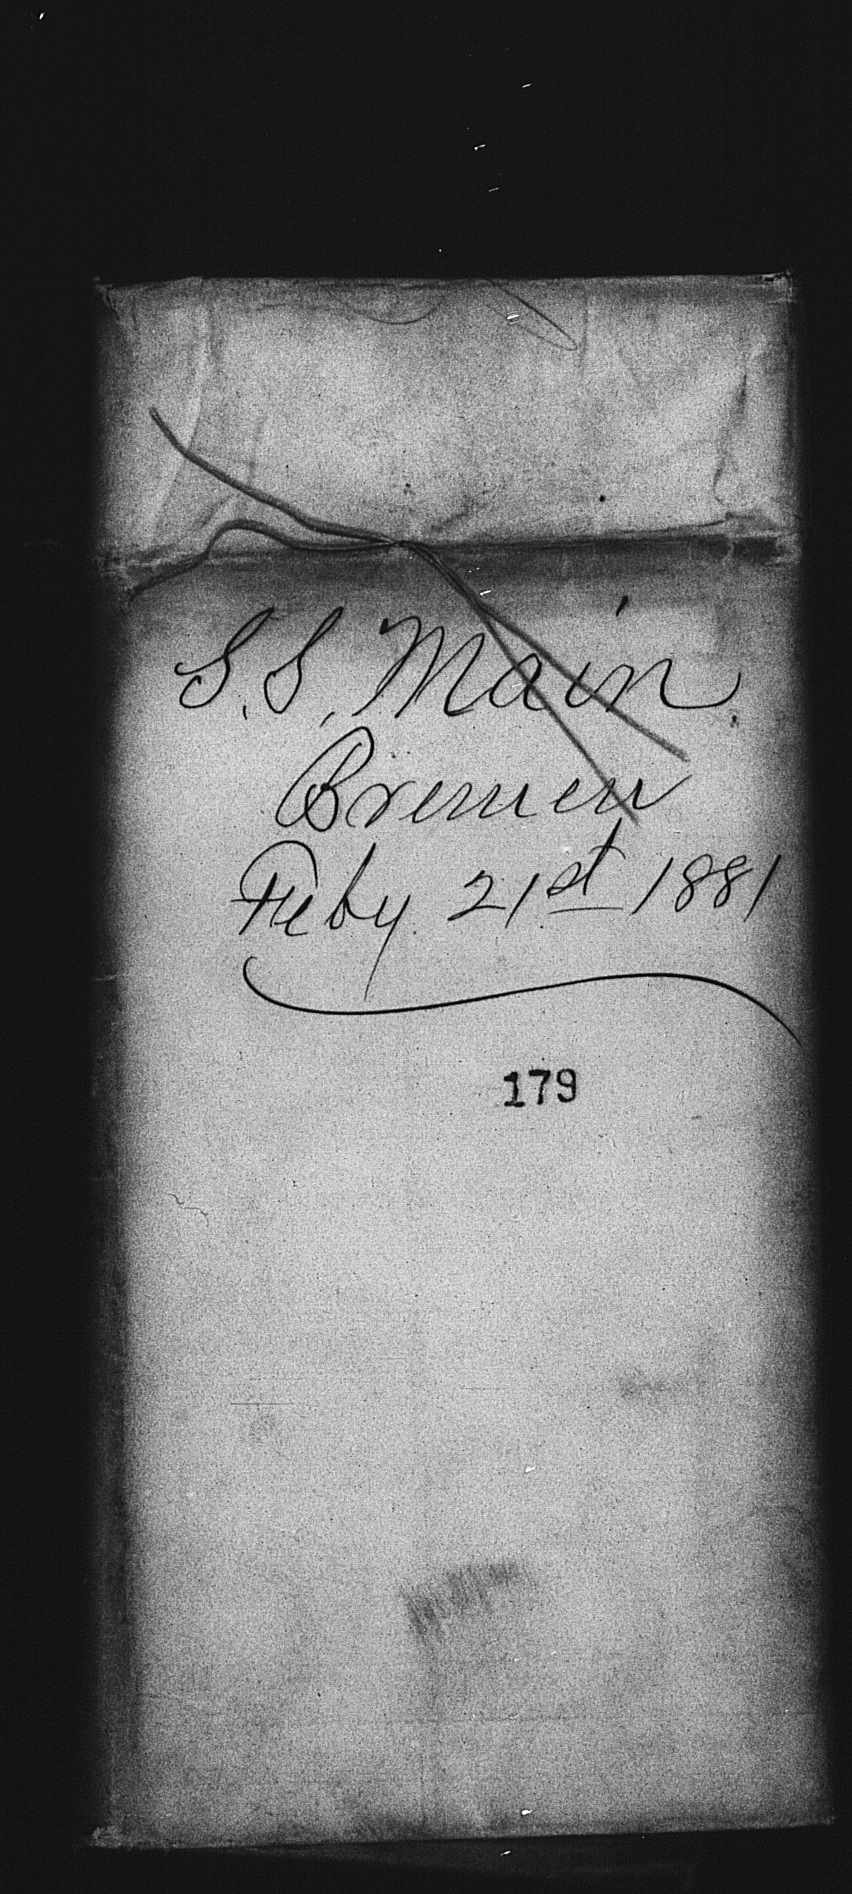 S.S. Main
Bremen
Feby. 21st 1881
179